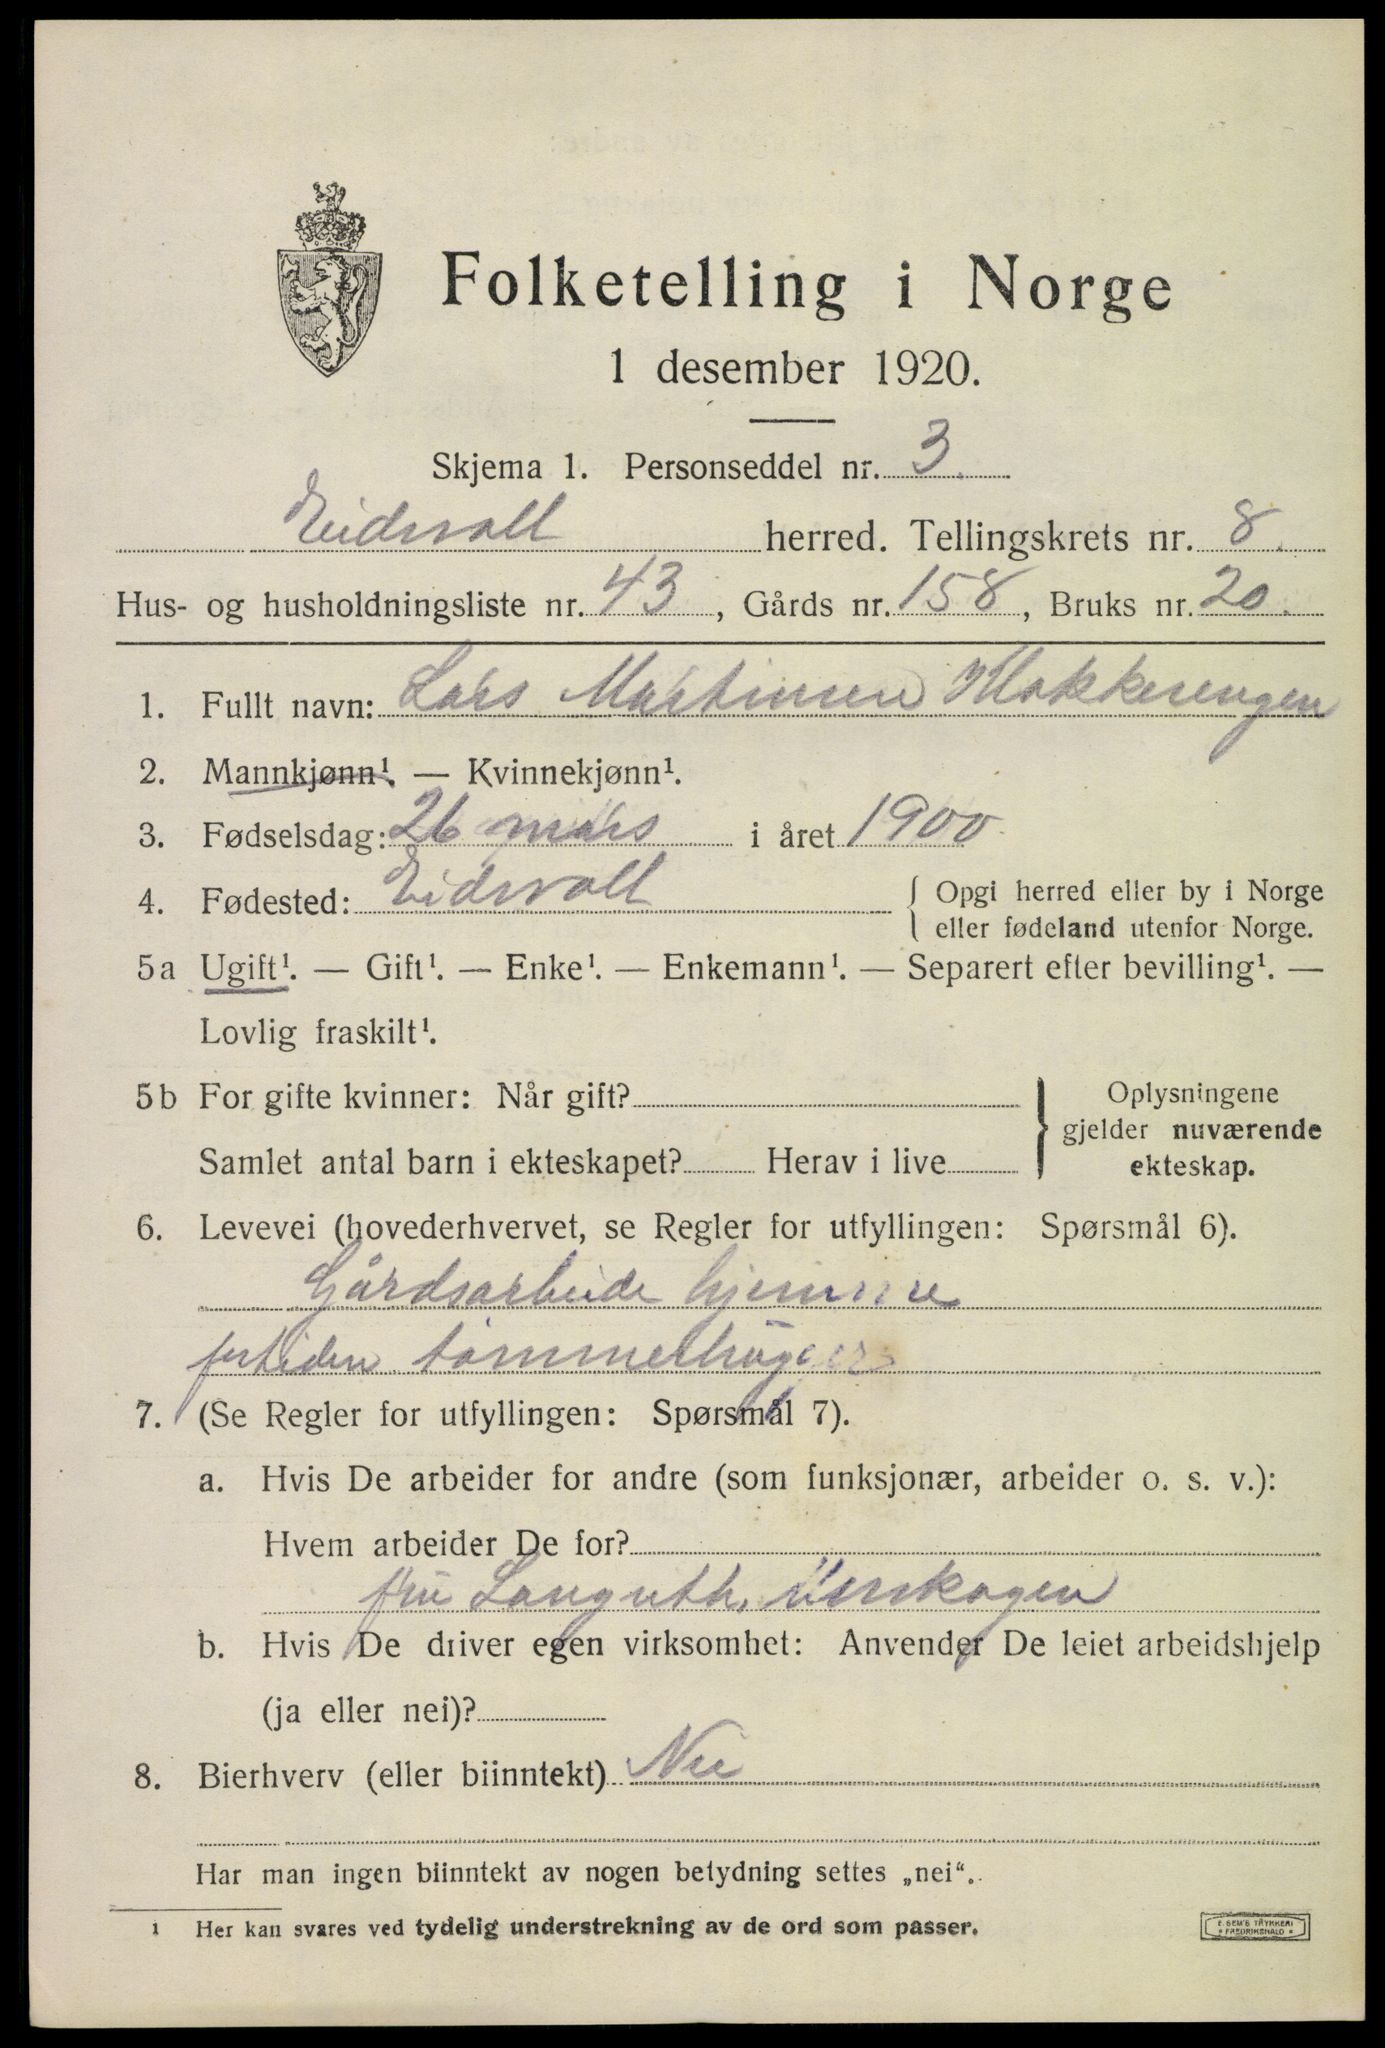 Folketelling i Norge
1 desember 1920.
Skjema 1. Personseddel nr. 3.
Eidsvoll herred. Tellingskrets nr. 8.
Hus- og husholdningsliste nr. 43, Gårds nr. 158, Bruks nr. 20.
1. Fullt navn: Lars Martinsen
2. Mannkjønn¹. — Kvinnekjønn¹.
3. Fødselsdag: 26 mars i året 1900.
4. Fødested: Eidsvoll { Opgi herred eller by i Norge
eller fødeland utenfor Norge.
5a Ugift¹. — Gift¹. — Enke¹. — Enkemann¹. — Separert efter bevilling¹. —
Lovlig fraskilt¹.
5b For gifte kvinner: Når gift?
Samlet antal barn i ekteskapet? Herav i live
} Oplysningene
gjelder nuværende
ekteskap.
6. Levevei (hovederhvervet, se Regler for utfyllingen: Spørsmål 6).
Gårdsarbeide hjemme
fortiden tømmerhugger
7. (Se Regler for utfyllingen: Spørsmål 7).
a. Hvis De arbeider for andre (som funksjonær, arbeider o. s. v.):
Hvem arbeider De for?
fru
b. Hvis De driver egen virksomhet: Anvender De leiet arbeidshjelp
(ja eller nei)?
8. Bierhverv (eller biinntekt) Nei
Har man ingen biinntekt av nogen betydning settes „nei“.
¹ Her kan svares ved tydelig understrekning av de ord som passer.
E. SEM'S TRYKKERI
* FREDRIKSHALD *